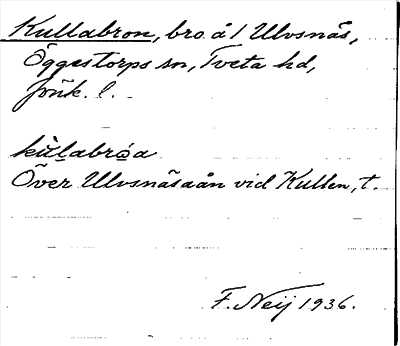 Kullabron, bro å 1 Ulvsnäs,
Öggestorps sn, Tveta hd,
Jönk. l.
kŭ̀l̲abrω̲a
Över Ulvsnäsaån vid Kullen, t.
F. Neij 1936.